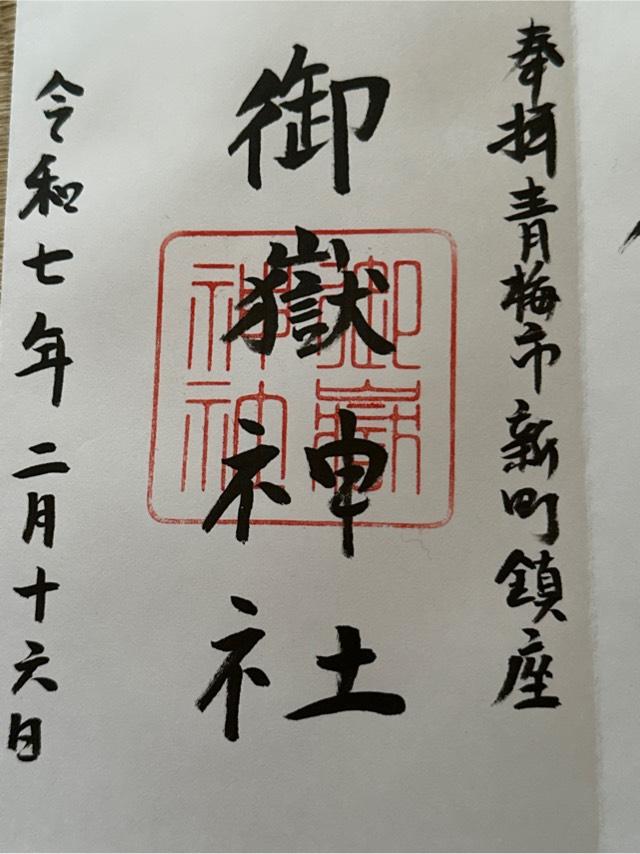 奉拝 青梅市新町鎮座
御嶽神社
御嶽神社
令和七年二月十六日